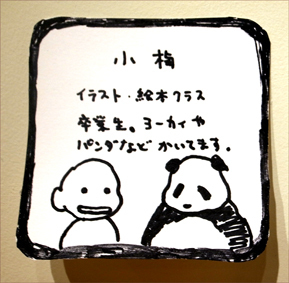 小梅
イラスト・絵本クラス
卒業生。ヨーカイや
パンダなどかいてます。